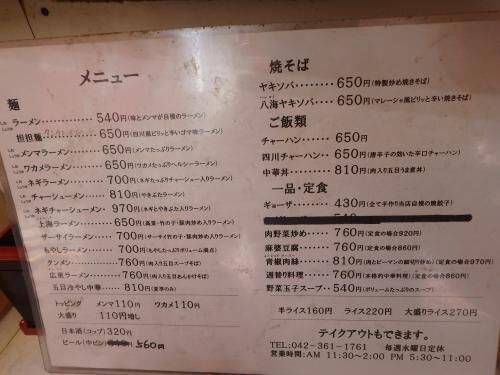 メニュー
麺
ラーメン・・・・・・・540円(味とメンマが自慢のラーメン)
担担麺・・・・・・・650円(四川風ピリッと辛いゴマ味ラーメン)
メンマラーメン・・・・650円(メンマたっぷりラーメン)
ワカメラーメン・・・・650円(ワカメたっぷりヘルシーラーメン)
ネギラーメン・・・・・700円(ネギたっぷりチャーシュー入りラーメン)
チャーシューメン・・・810円(やきぶたラーメン)
ネギチャーシューメン・970円(ネギとやきぶた入りラーメン)
上海ラーメン・・・・650円(高菜・竹の子・豚肉炒め入りラーメン)
ザーサイラーメン・・・700円(ザーサイ竹の子・豚肉炒め入りラーメン)
もやしラーメン・・・・700円(もやしたっぷりボリューム満点)
タンメン・・・・・・・760円(肉入り五目スープそば)
広東ラーメン・・・・・760円(肉入り五目あんかけそば)
五目冷やし中華・・・・810円(夏季のみ)
トッピング メンマ110円 ワカメ110円
大盛り 110円増し
日本酒(コップ)320円
ビール(中ビン) 560円
焼そば
ヤキソバ・・・・・・・・650円(特製炒め焼きそば)
八海ヤキソバ・・・・・650円(マレーシャ風ピリッと辛い焼きそば)
ご飯類
チャーハン・・・・・・650円
四川チャーハン・・・・650円(唐辛子の効いた辛口チャーハン)
中華丼・・・・・・・・810円(肉入り五目うま煮丼)
一品・定食
ギョーザ・・・・・・・430円(全て手作り当店自慢の焼餃子)
肉野菜炒め・・・・・・760円(定食の場合920円)
麻婆豆腐・・・・・・・700円(定食の場合860円)
青椒肉絲・・・・・・・810円(肉とピーマンの細切り炒め)(定食の場合970円)
週替り料理・・・・・・700円(本格的中華料理)(定食の場合860円)
野菜玉子スープ・・・・540円(ボリュームたっぷりのスープ)
半ライス160円 ライス220円 大盛りライス270円
テイクアウトもできます。
TEL:042-361-1761 毎週水曜日定休
営業時間:AM 11:30~2:00 PM 5:30~11:00